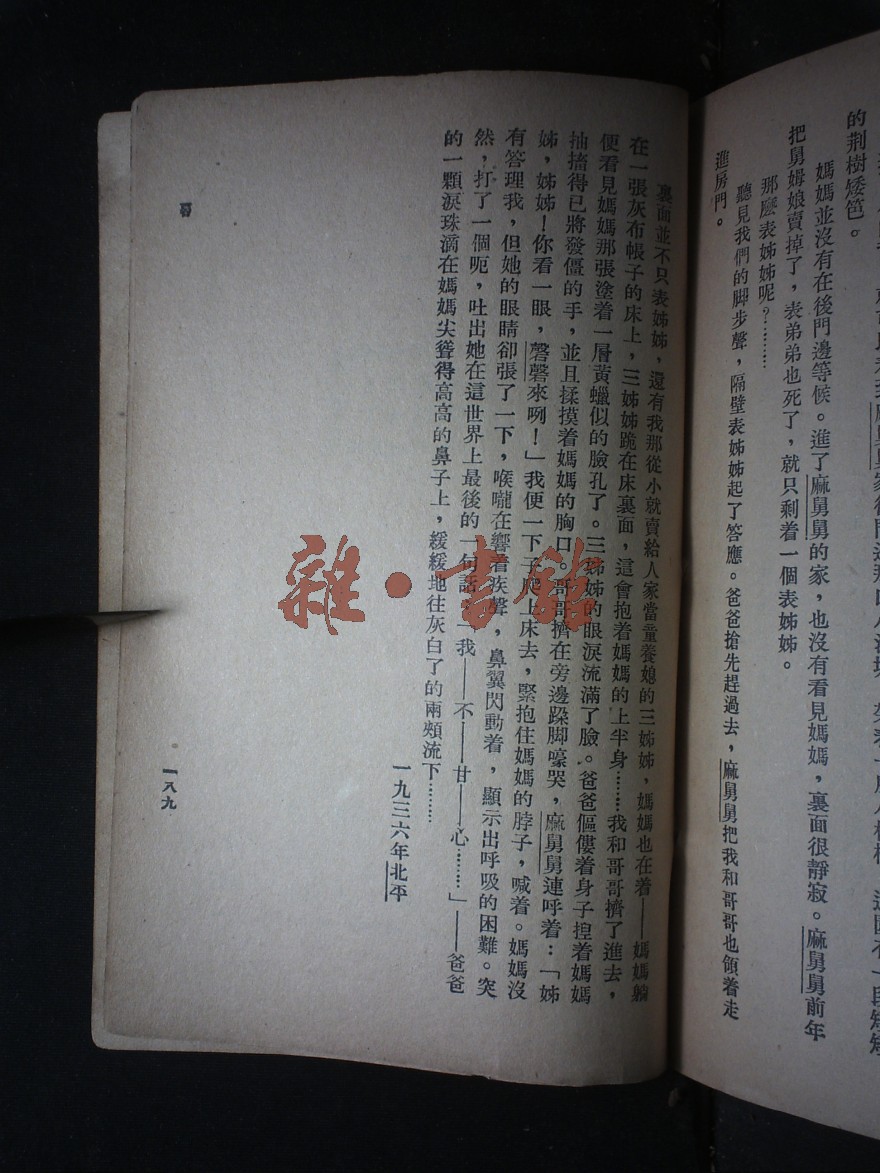 的荆樹矮笆。
媽媽並沒有在後門邊等候。進了麻舅舅的家，也沒有看見媽媽，裏面很靜寂。麻舅舅前年
把舅姆娘賣掉了，表弟弟也死了，就只剩着一個表姊姊。
那麼表姊姊呢？………
聽見我們的脚步聲，隔壁表姊姊起了答應。爸爸搶先趕過去，麻舅舅把我和哥哥也領着走
進房門。
裏面並不只表姊姊，還有我那從小就賣給人家當童養媳的三姊姊，媽媽也在着——媽媽躺
在一張灰布帳子的床上，三姊姊跪在床裏面，這會抱着媽媽的上半身………我和哥哥擠了進去，
便看見媽媽那張塗着一層黃蠟似的臉孔了。三姊姊的眼淚流滿了臉。爸爸傴僂着身子揑着媽媽
抽搐得已將發僵的手，並且揉摸着媽媽的胸口。哥哥擠在旁邊跺脚嚎哭，麻舅舅連呼着：「姊
姊，姊姊！你看一眼，磬磬來咧！」我便一下子爬上床去，緊抱住媽媽的脖子，喊着。媽媽沒
有答理我，但她的眼睛卻張了一下，喉嚨在響着痰聲，鼻翼閃動着，顯示出呼吸的困難。突
然，打了一個呃，吐出她在這世界上最後的一句話：「我——不——甘——心………」——爸爸
的一顆淚珠滴在媽媽尖聳得高高的鼻子上，緩緩地往灰白了的兩頰流下………
一九三六年北平
一八九
雜·書館